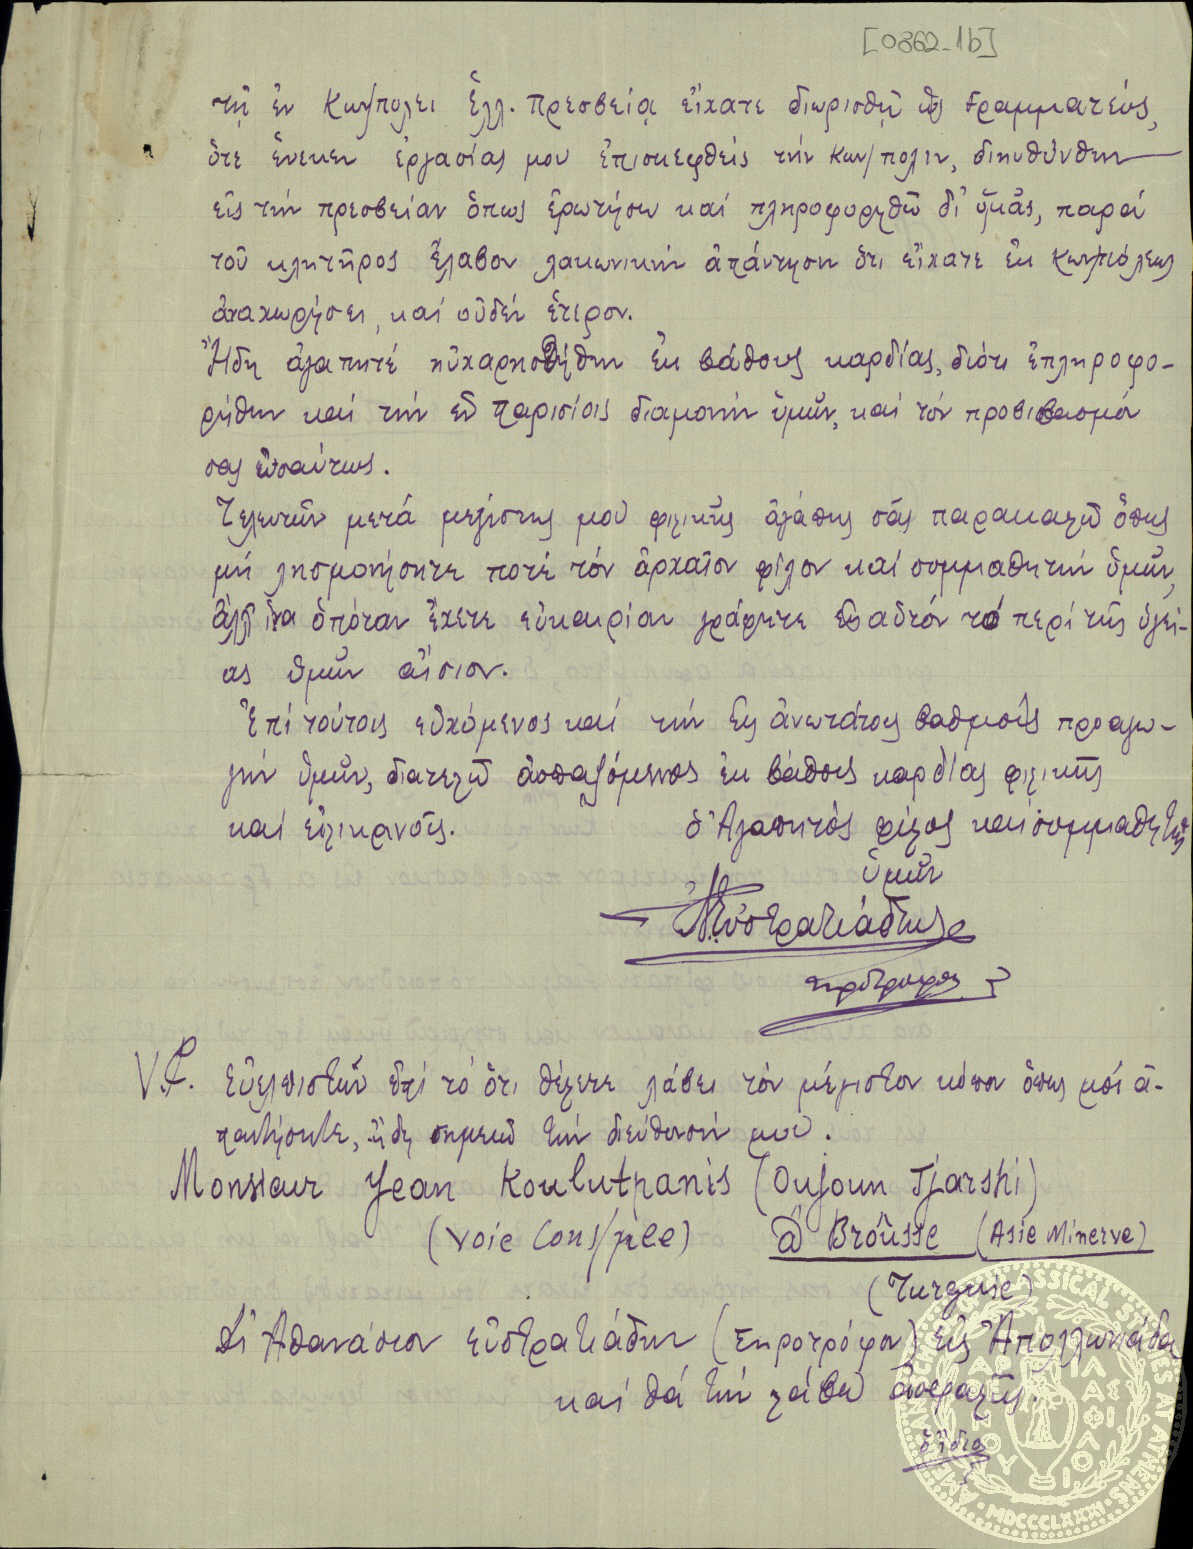 [0862-1b]
τῇ ἐν Κων/πολει Ἑλλ. Πρεσβείᾳ εἴχατε διωρισθῇ ὡς Γραμματεύς,
ὅτε ἕνεκεν ἐργασίας μου ἐπισκεφθείς τήν Κων/πολιν, διηυθύνθην
εἰς τήν πρεσβείαν ὅπως ἐρωτήσω καί πληροφορηθῶ δι' ὑμᾶς, παρά
τοῦ κλητῆρος ἔλαβον λακωνικήν ἀπάντησιν ὅτι εἴχατε ἐκ Κων/πόλεως
ἀναχωρήσει, καί οὐδέν ἕτερον.
Ἤδη ἀγαπητέ ηὐχαρησθήθην ἐκ βάθους καρδίας, διότι ἐπληροφο-
ρήθην καί τήν ἐν Παρισίοις διαμονήν ὑμῶν, καί τόν προβιβασμόν
σας ὡσαύτως.
Τελευτῶν μετά μεγίστης μου φιλικῆς ἀγάπης σᾶς παρακαλῶ ὅπως
μή λησμονήσητε ποτέ τόν ἀρχαῖον φίλον καί συμμαθητήν ὑμῶν,
ἀλλ' ἵνα ὁπόταν ἔχετε εὐκαιρίαν γράφητε εἰς αὐτόν τό περί τῆς ὑγεί-
ας ὑμῶν αἴσιον.
Ἐπί τούτοις εὐχόμενος καί τήν εἰς ἀνωτάτους βαθμούς προαγω-
γήν ὑμῶν, διατελῶ ἀσπαζόμενος ἐκ βάθους καρδίας φιλικῆς
καί εἰλικρινοῦς. ὁ Ἀγαπητός φίλος καί συμμαθητής
ὑμῶν
Εὐστρατιάδης
σηρότροφος
V.P. Εὐελπιστῶν ἐπί τό ὅτι θέλετε λάβει τόν μέγιστον κόπον ὅπως μοί ἀ-
παντήσητε, ἤδη σημειῶ τήν διεύθυνσήν μου.
Monsieur Jean Koulutpanis (Oujoun Tjarshi)
(voie Cons/ple) à Broússe (Asie Minerve)
(Turquie)
Δι' Ἀθανάσιον Εὐστρατιάδην (Σηροτρόφον) εἰς Ἀπολλωνιάδα
καί θά τήν λάβω ἀσφαλῶς.
ὁ ἴδιος
AMERICAN SCHOOL OF CLASSICAL STUDIES AT ATHENS
MDCCCLXXXI